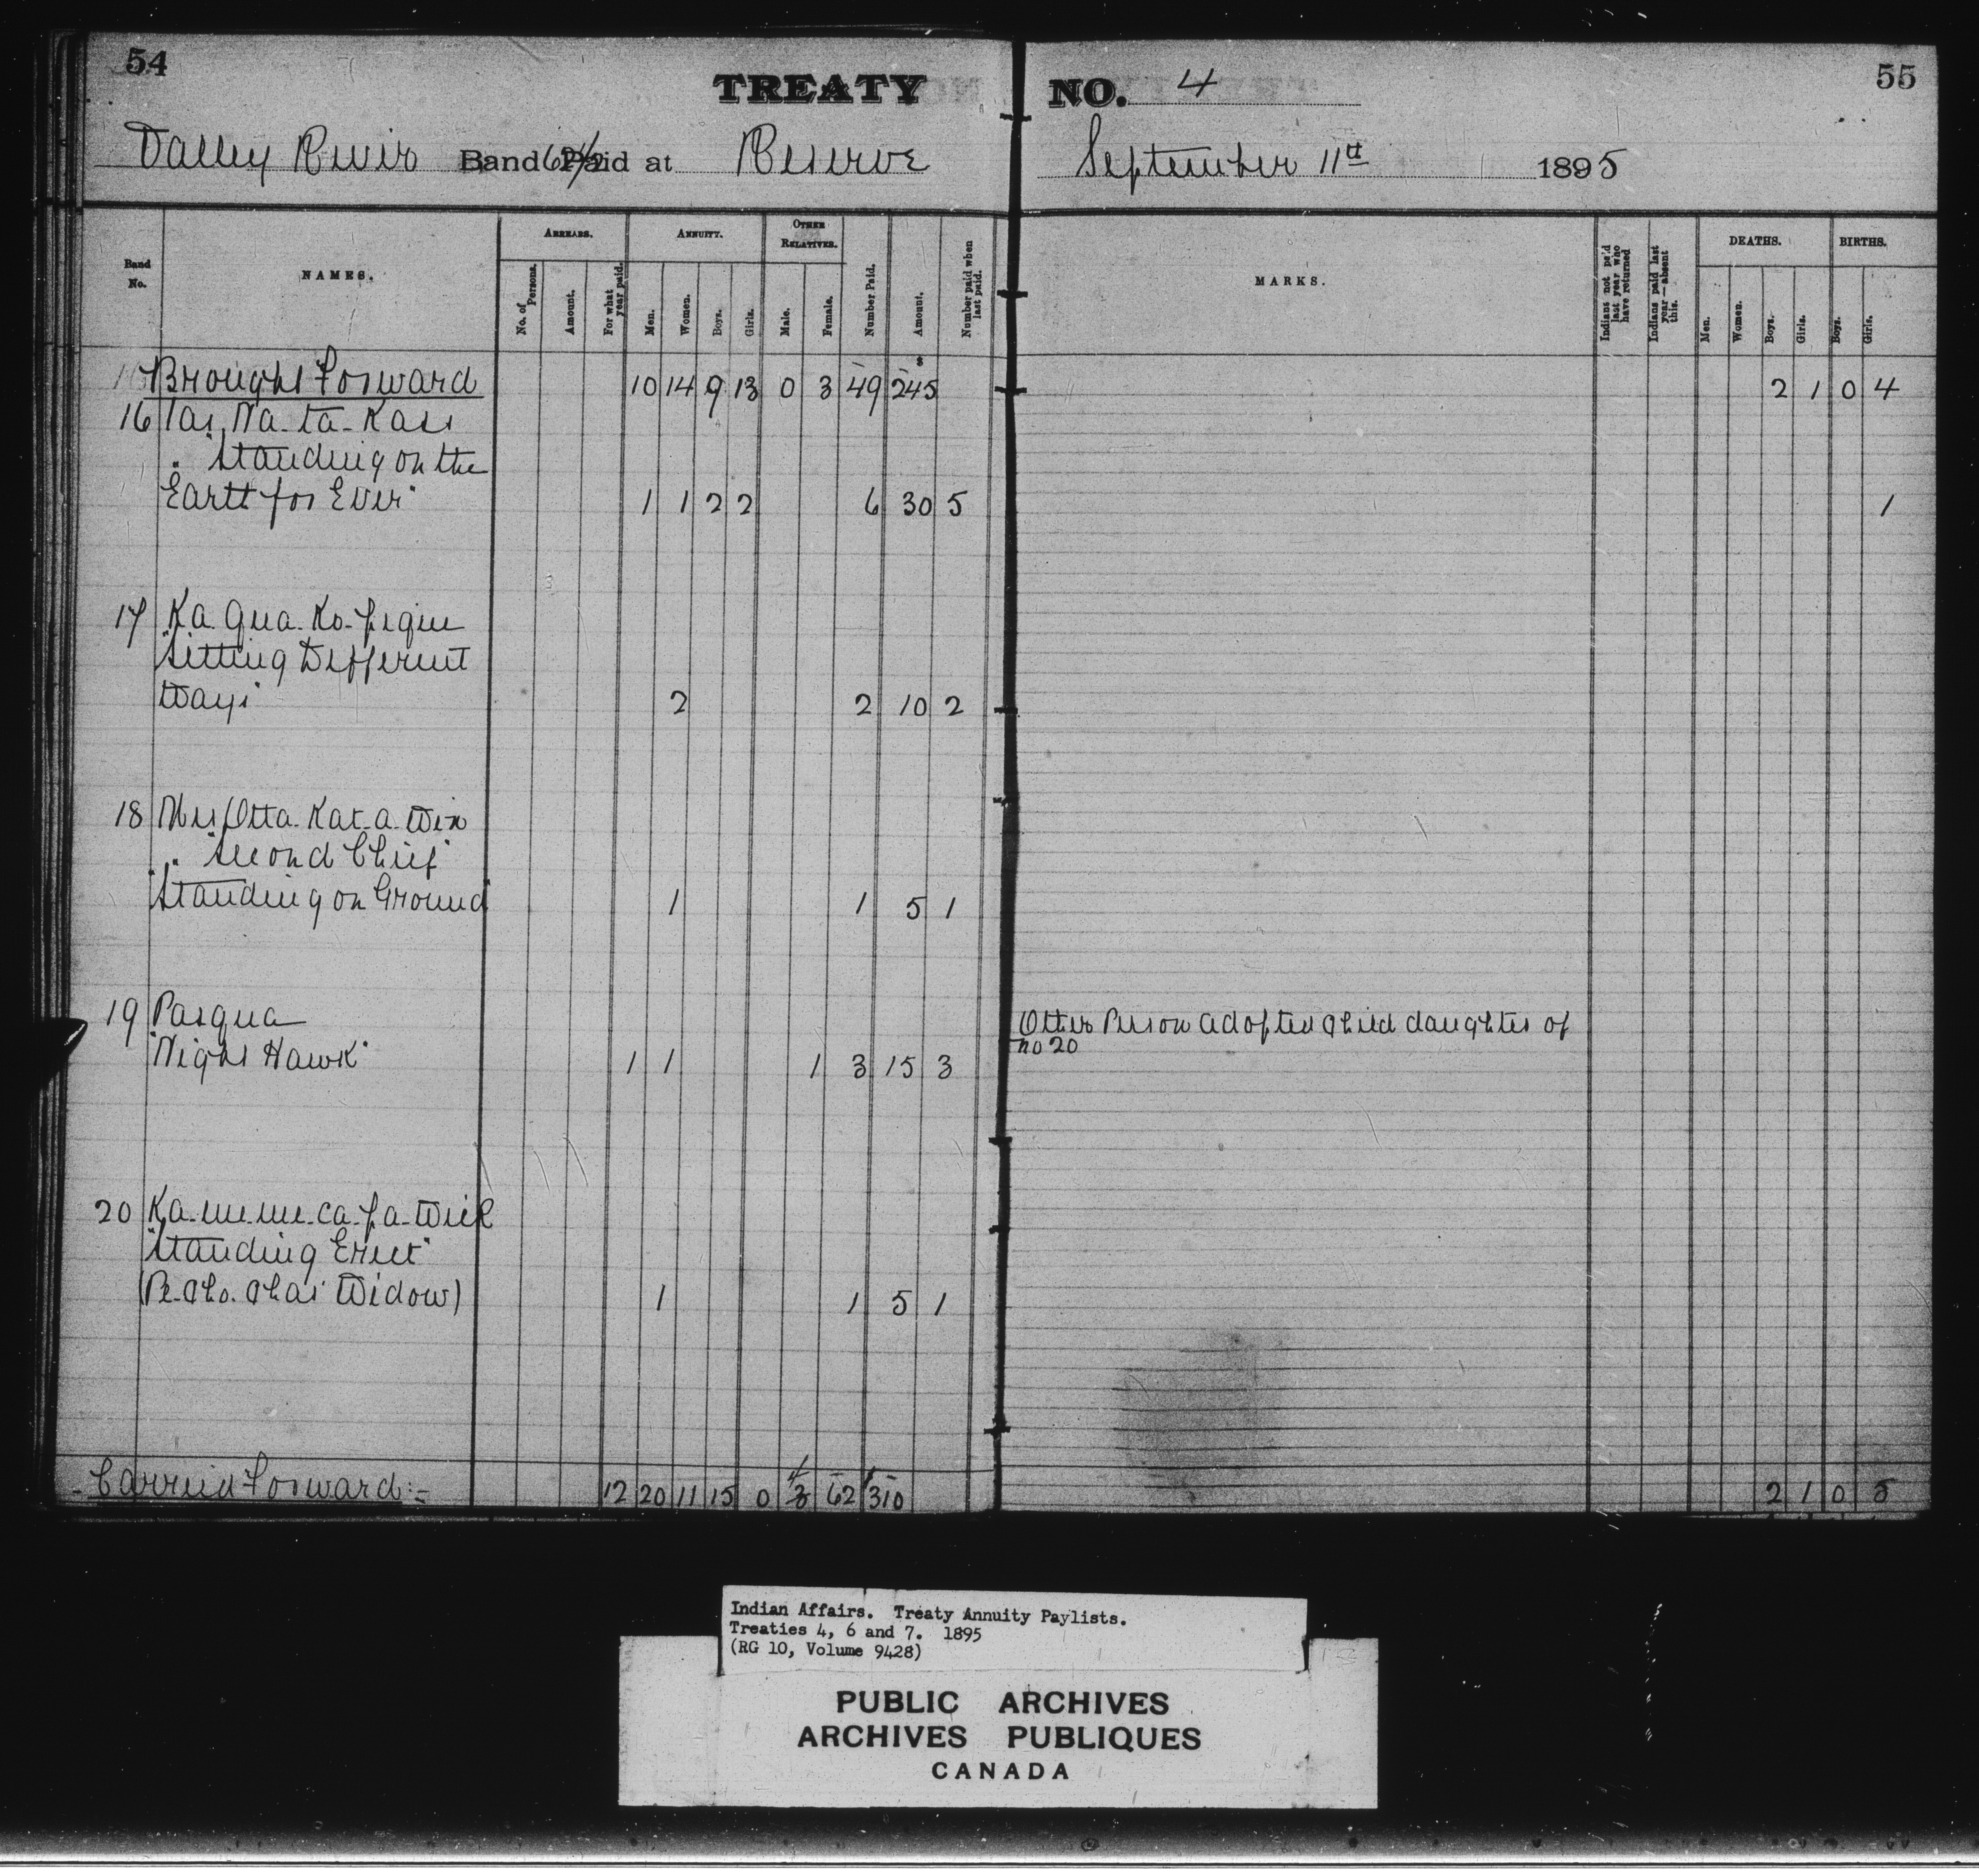 54
TREATY NO. 4
55
Valley River Band 62 1/2 Paid at Reserve September 11th 1895
Band No.
NAMES.
ARREARS.
No. of Persons.
Amount.
For what year paid.
ANNUITY.
Men.
Women.
Boys.
Girls.
OTHER RELATIVES.
Male.
Female.
Number Paid.
Amount.
Number paid when last paid.
MARKS.
Indians not pa'd last year who have returned
Indians paid last year—absent this.
DEATHS.
Men.
Women.
Boys.
Girls.
BIRTHS.
Boys.
Girls.
Brought Forward 10 14 9 13 0 3 49 245 2 1 0 4
16 Tas Na-ta-Kass
"Standing on the
Earth for Ever" 1 1 2 2 6 30 5 1
17 Ka qua-Ko-pique
"Sitting Different
Ways 2 2 10 2
18 Otta-Kat-a-Win
"Second Chief"
"Standing on Ground" 1 1 5 1
19 Pasqua Other Person adopted child daughter of
"Night Hawk" 1 1 1 3 15 3 no 20
20 Ka-me-me-ca-pa-Wick
"Standing Erect"
(Pe-cho-chas Widow) 1 1 5 1
Carried Forward:- 12 20 11 15 0 4 3 62 310 2 1 0 5
Indian Affairs. Treaty Annuity Paylists.
Treaties 4, 6 and 7. 1895
(RG 10, Volume 9428)
PUBLIC ARCHIVES
ARCHIVES PUBLIQUES
CANADA